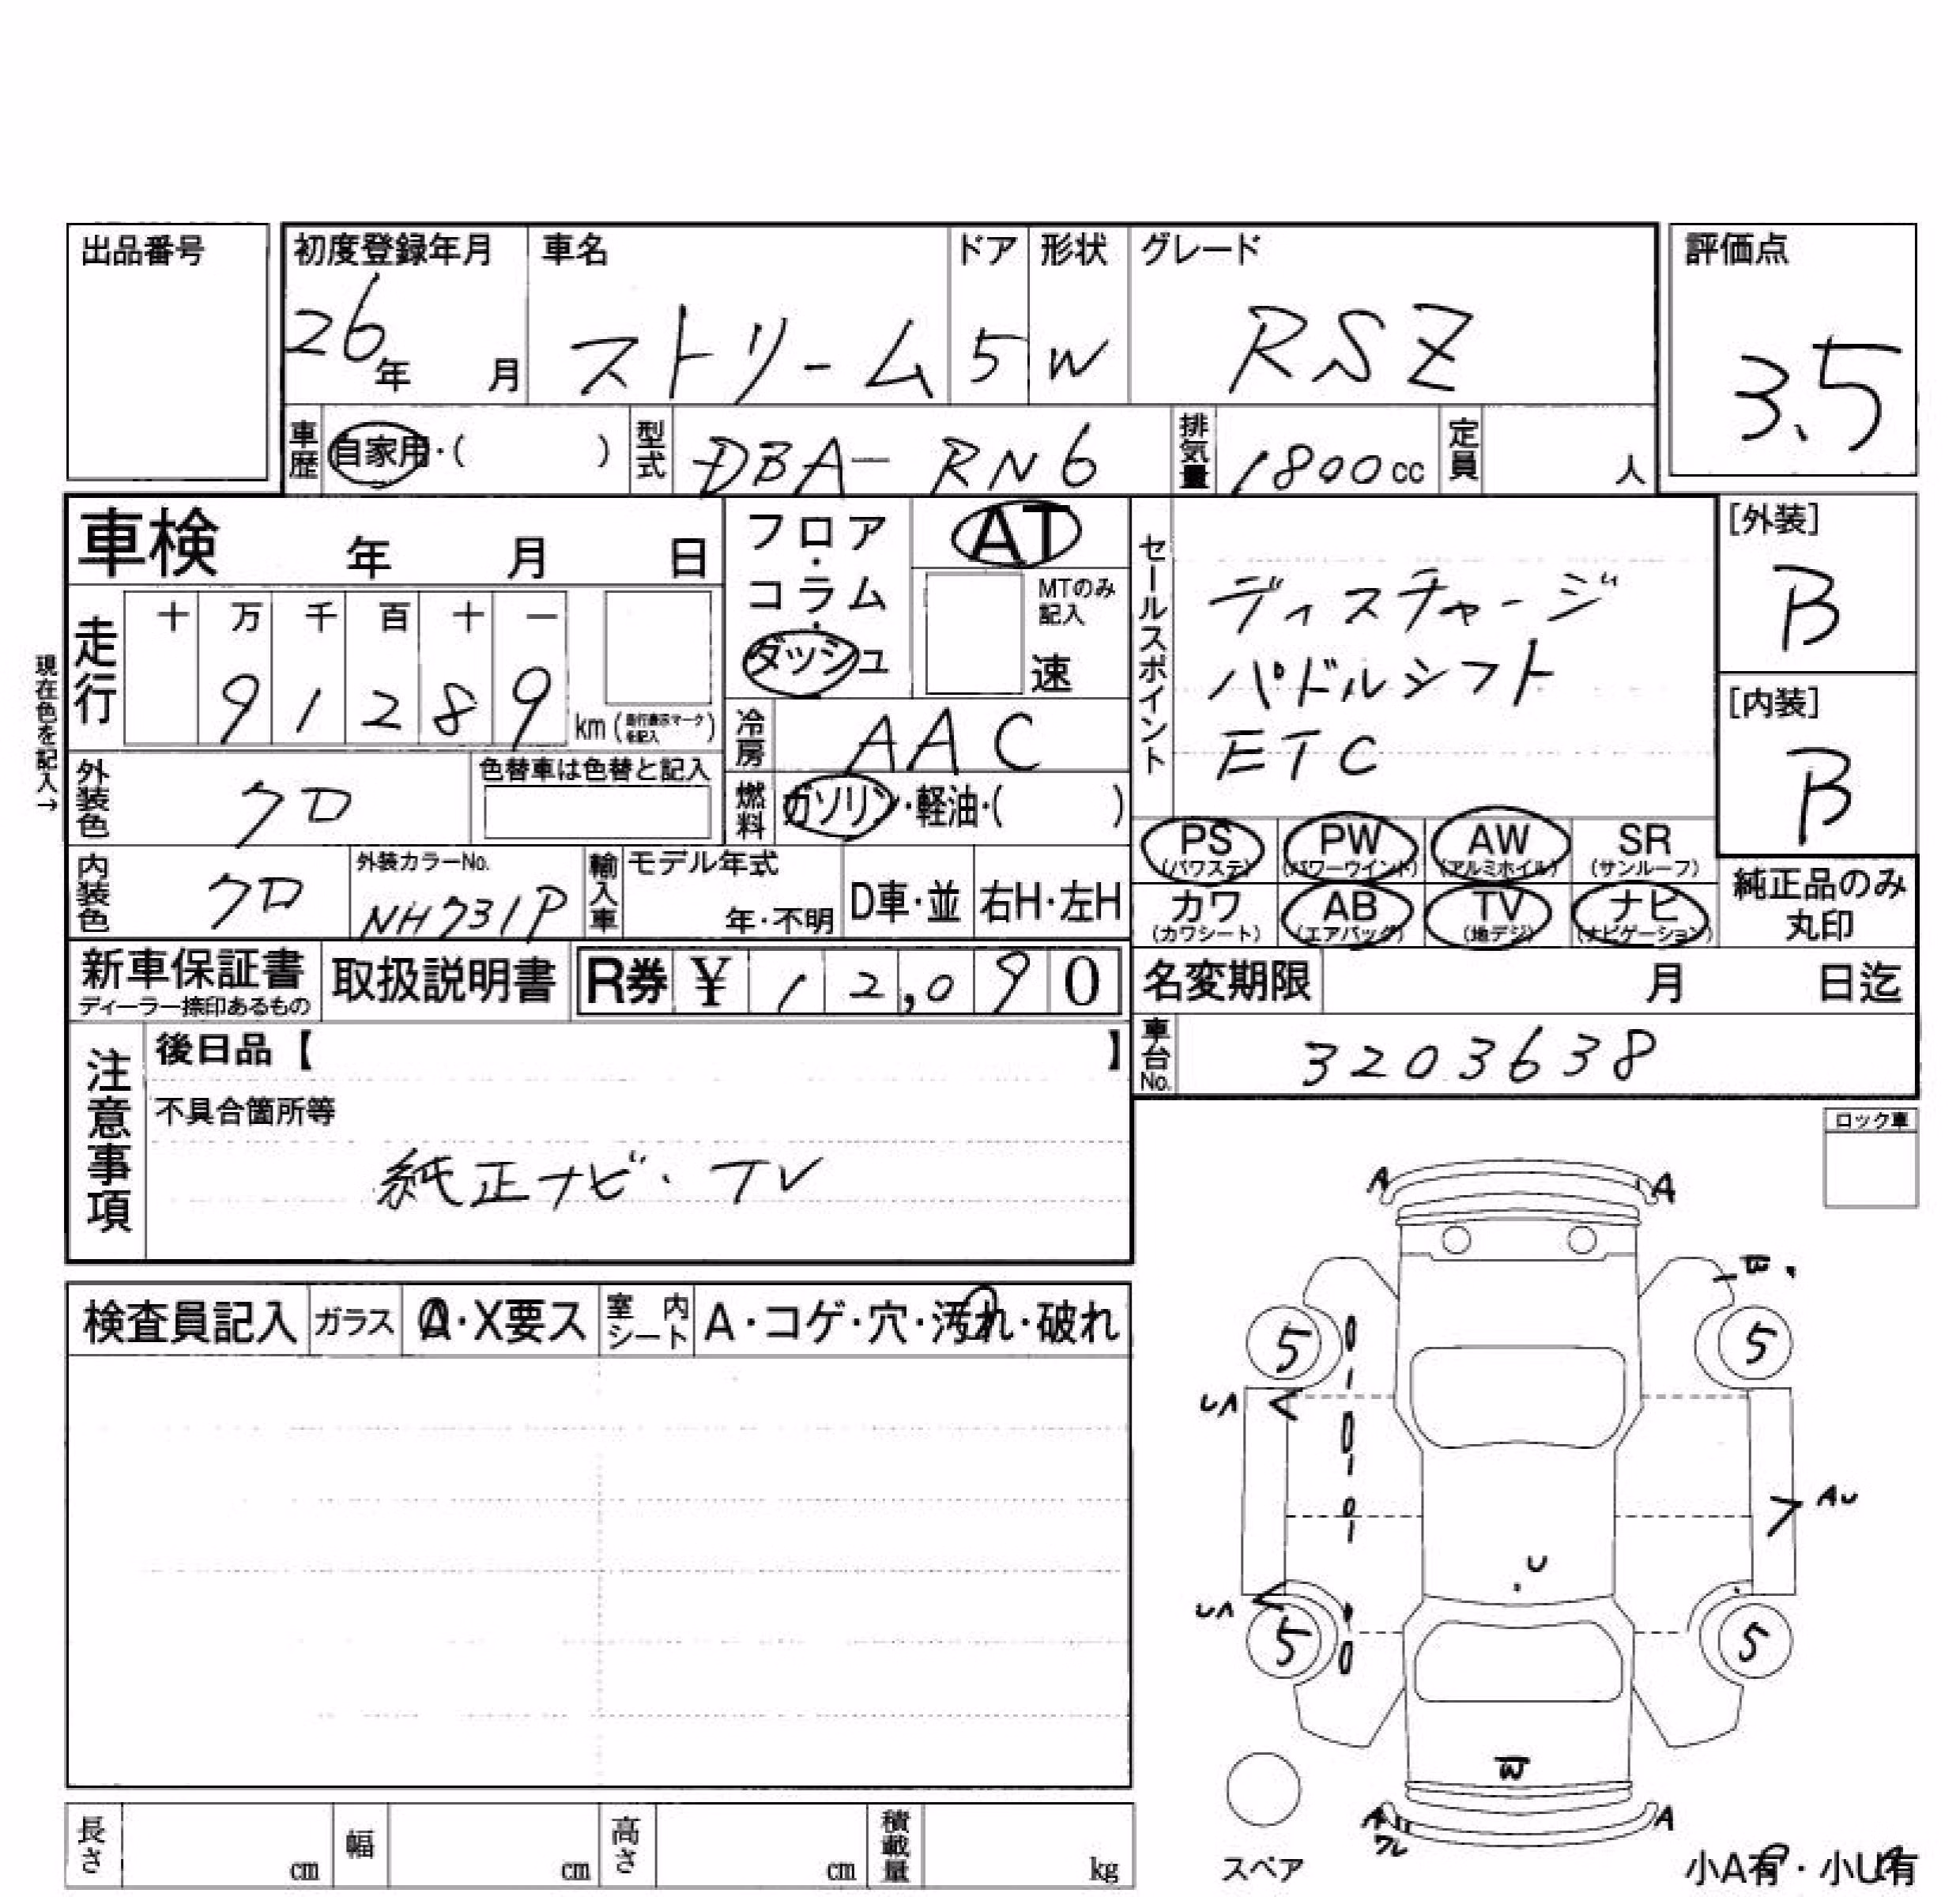 出品番号
初度登録年月 車名 ドア 形状 グレード 評価点
26年 月 ストリーム 5 W RSZ 3.5
車歴 自家用・( ) 型式 DBA-RN6 排気量 1800cc 定員 人
車検 年 月 日
フロア・コラム・ダッシュ
AT
MTのみ記入
速
セールスポイント
ディスチャージ
パドルシフト
ETC
[外装]
B
[内装]
B
現在色を記入→
走行 十 万 千 百 十 一
9 1 2 8 9 km (走行表示マークを記入)
冷房 AAC
外装色 クロ 色替車は色替と記入
燃料 ガソリン・軽油・( )
PS (パワステ) PW (パワーウインド) AW (アルミホイル) SR (サンルーフ)
カワ (カワシート) AB (エアバッグ) TV (地デジ) ナビ (ナビゲーション)
純正品のみ丸印
内装色 クロ 外装カラーNo. NH731P 輸入車 モデル年式 年・不明 D車・並 右H・左H
新車保証書 ディーラー捺印あるもの 取扱説明書 R券 ¥ 12,090
名変期限 月 日迄
車台No. 3203638
注意事項
後日品【 】
不具合箇所等
純正ナビ・TV
ロック車
検査員記入 ガラス A・X要ス 室内シート A・コゲ・穴・汚れ・破れ
A A
W
5 5
UA
AU
U
UA
5 5
W
A A
ワレ
スペア
小A有・小U有
長さ cm 幅 cm 高さ cm 積載量 kg